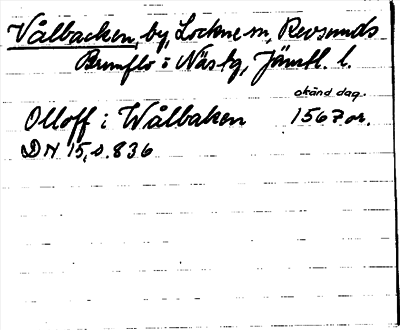 Vålbacken, by, Lockne sn, Revsunds
Brunflo o Näs tg, Jämtl. l.
okänd dag.
Olloff i Wålbaken 1567 or.
DN 15, s. 836